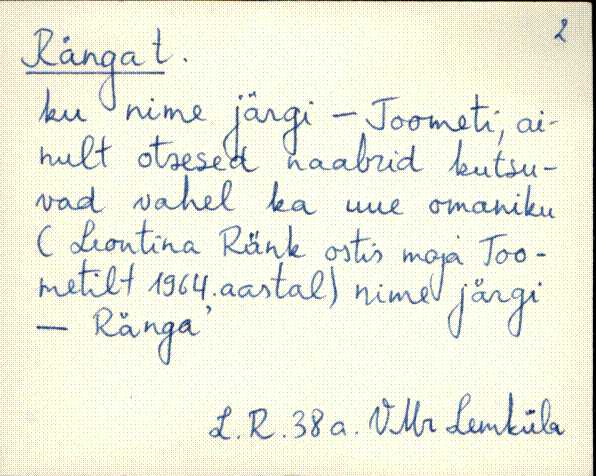 2
Ränga t.
ku nime järgi – Toometi, ai-
nult otsesed naabrid kutsu-
vad vahel ka uue omaniku
(Leontina Ränk ostis maja Too-
metilt 1964. aastal) nime järgi
— Ränga'
L.R. 38 a. VMr Lemküla